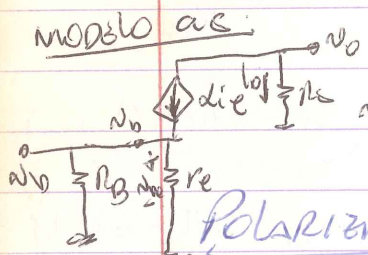 MODELO ac
vo
αie
io
Rc
vb
vb
RB
re
POLARIZA